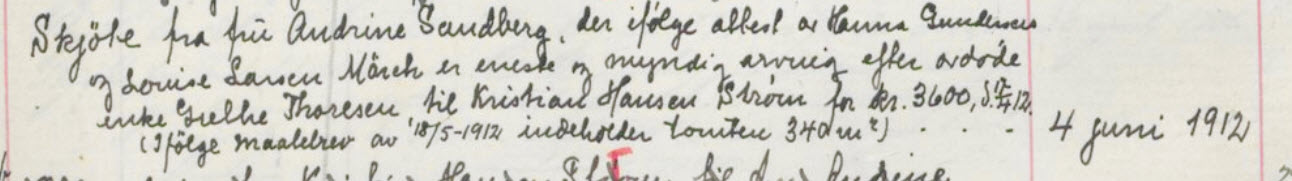 Skjöte fra fru Andrine Sandberg, der ifølge attest av Hanna Gundersen
og Louise Larsen Mörch er eneste og myndig arving efter avdøde
enke Grethe Thoresen til Kristian Hansen Strøm for kr. 3600, d.
(Ifölge maalebrev av 18/5-1912 indeholder tomten 340 m²) . . . 4 juni 1912
Hansen Strøm til